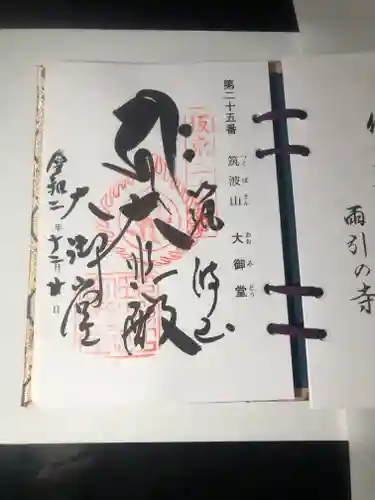 雨引の寺
第二十五番
筑波山 大御堂
つくばさん おおみどう
筑波山
大悲殿
大御堂
令和二年十二月